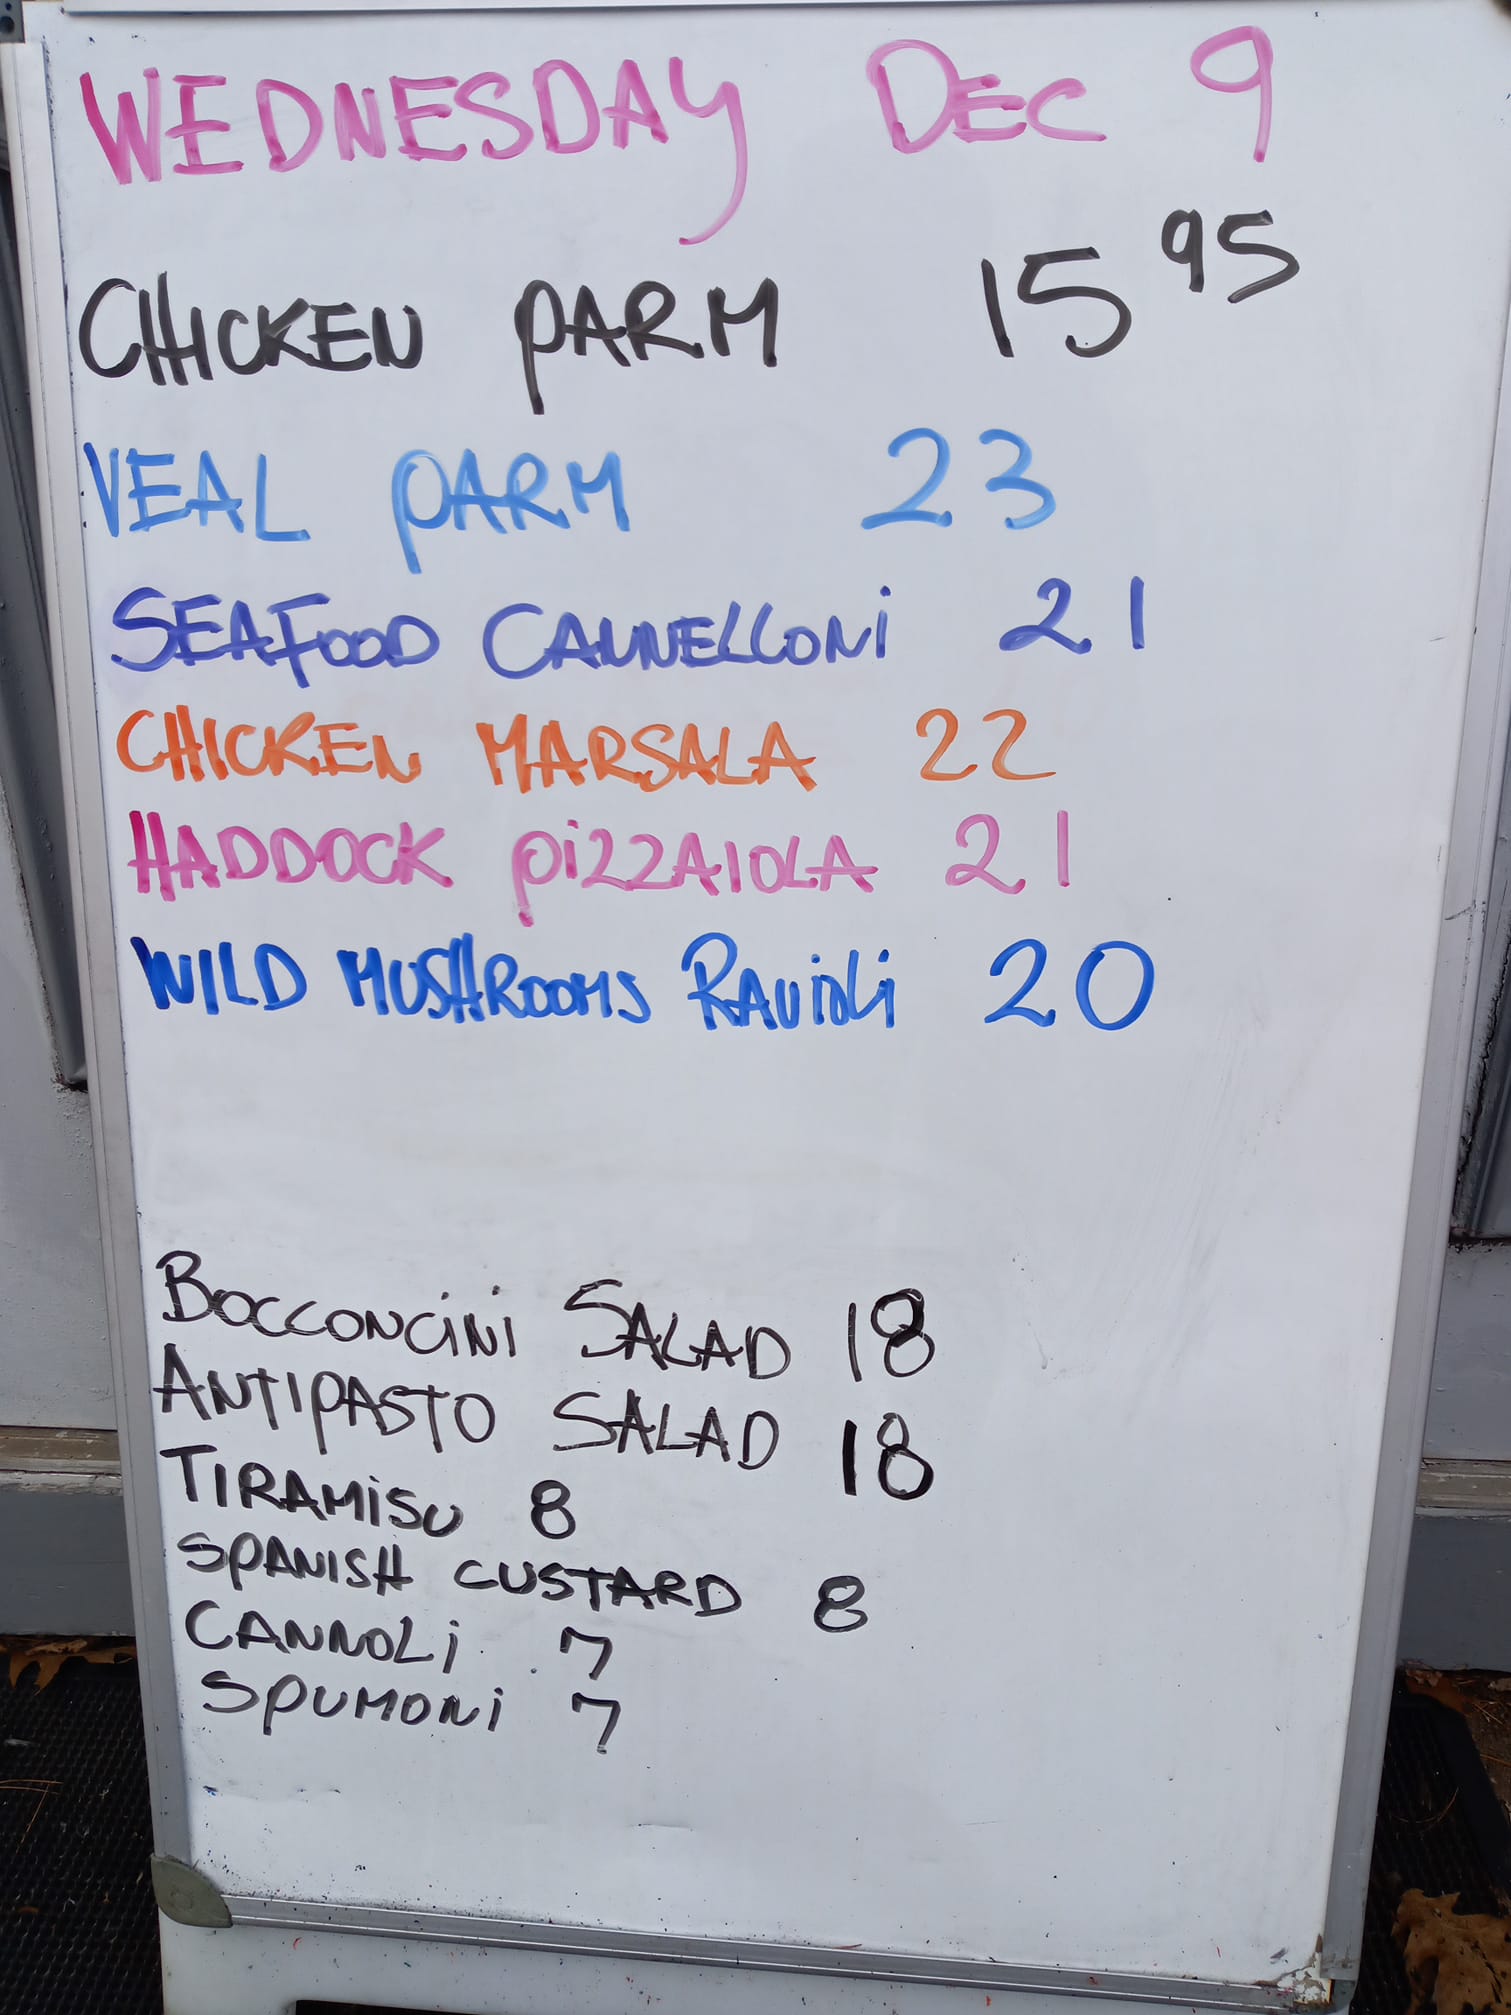 WEDNESDAY DEC 9
CHICKEN PARM 15 95
VEAL PARM 23
SEAFOOD CANNELLONI 21
CHICKEN MARSALA 22
HADDOCK PiZZAIOLA 21
WILD MUSHROOMS RAViOLi 20
BOCCONCiNi SALAD 18
ANTIPASTO SALAD 18
TIRAMiSU 8
SPANISH CUSTARD 8
CANNOLi 7
SPUMONi 7